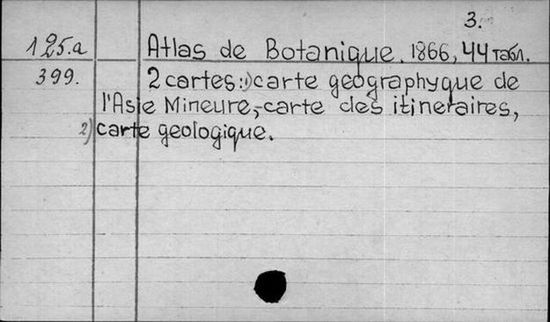 3.
125.a Atlas de Botanique. 1866, 44 табл.
399. 2 cartes: 1) carte geographyque de
l'Asie Mineure,-carte des itineraires,
2) carte geologique.